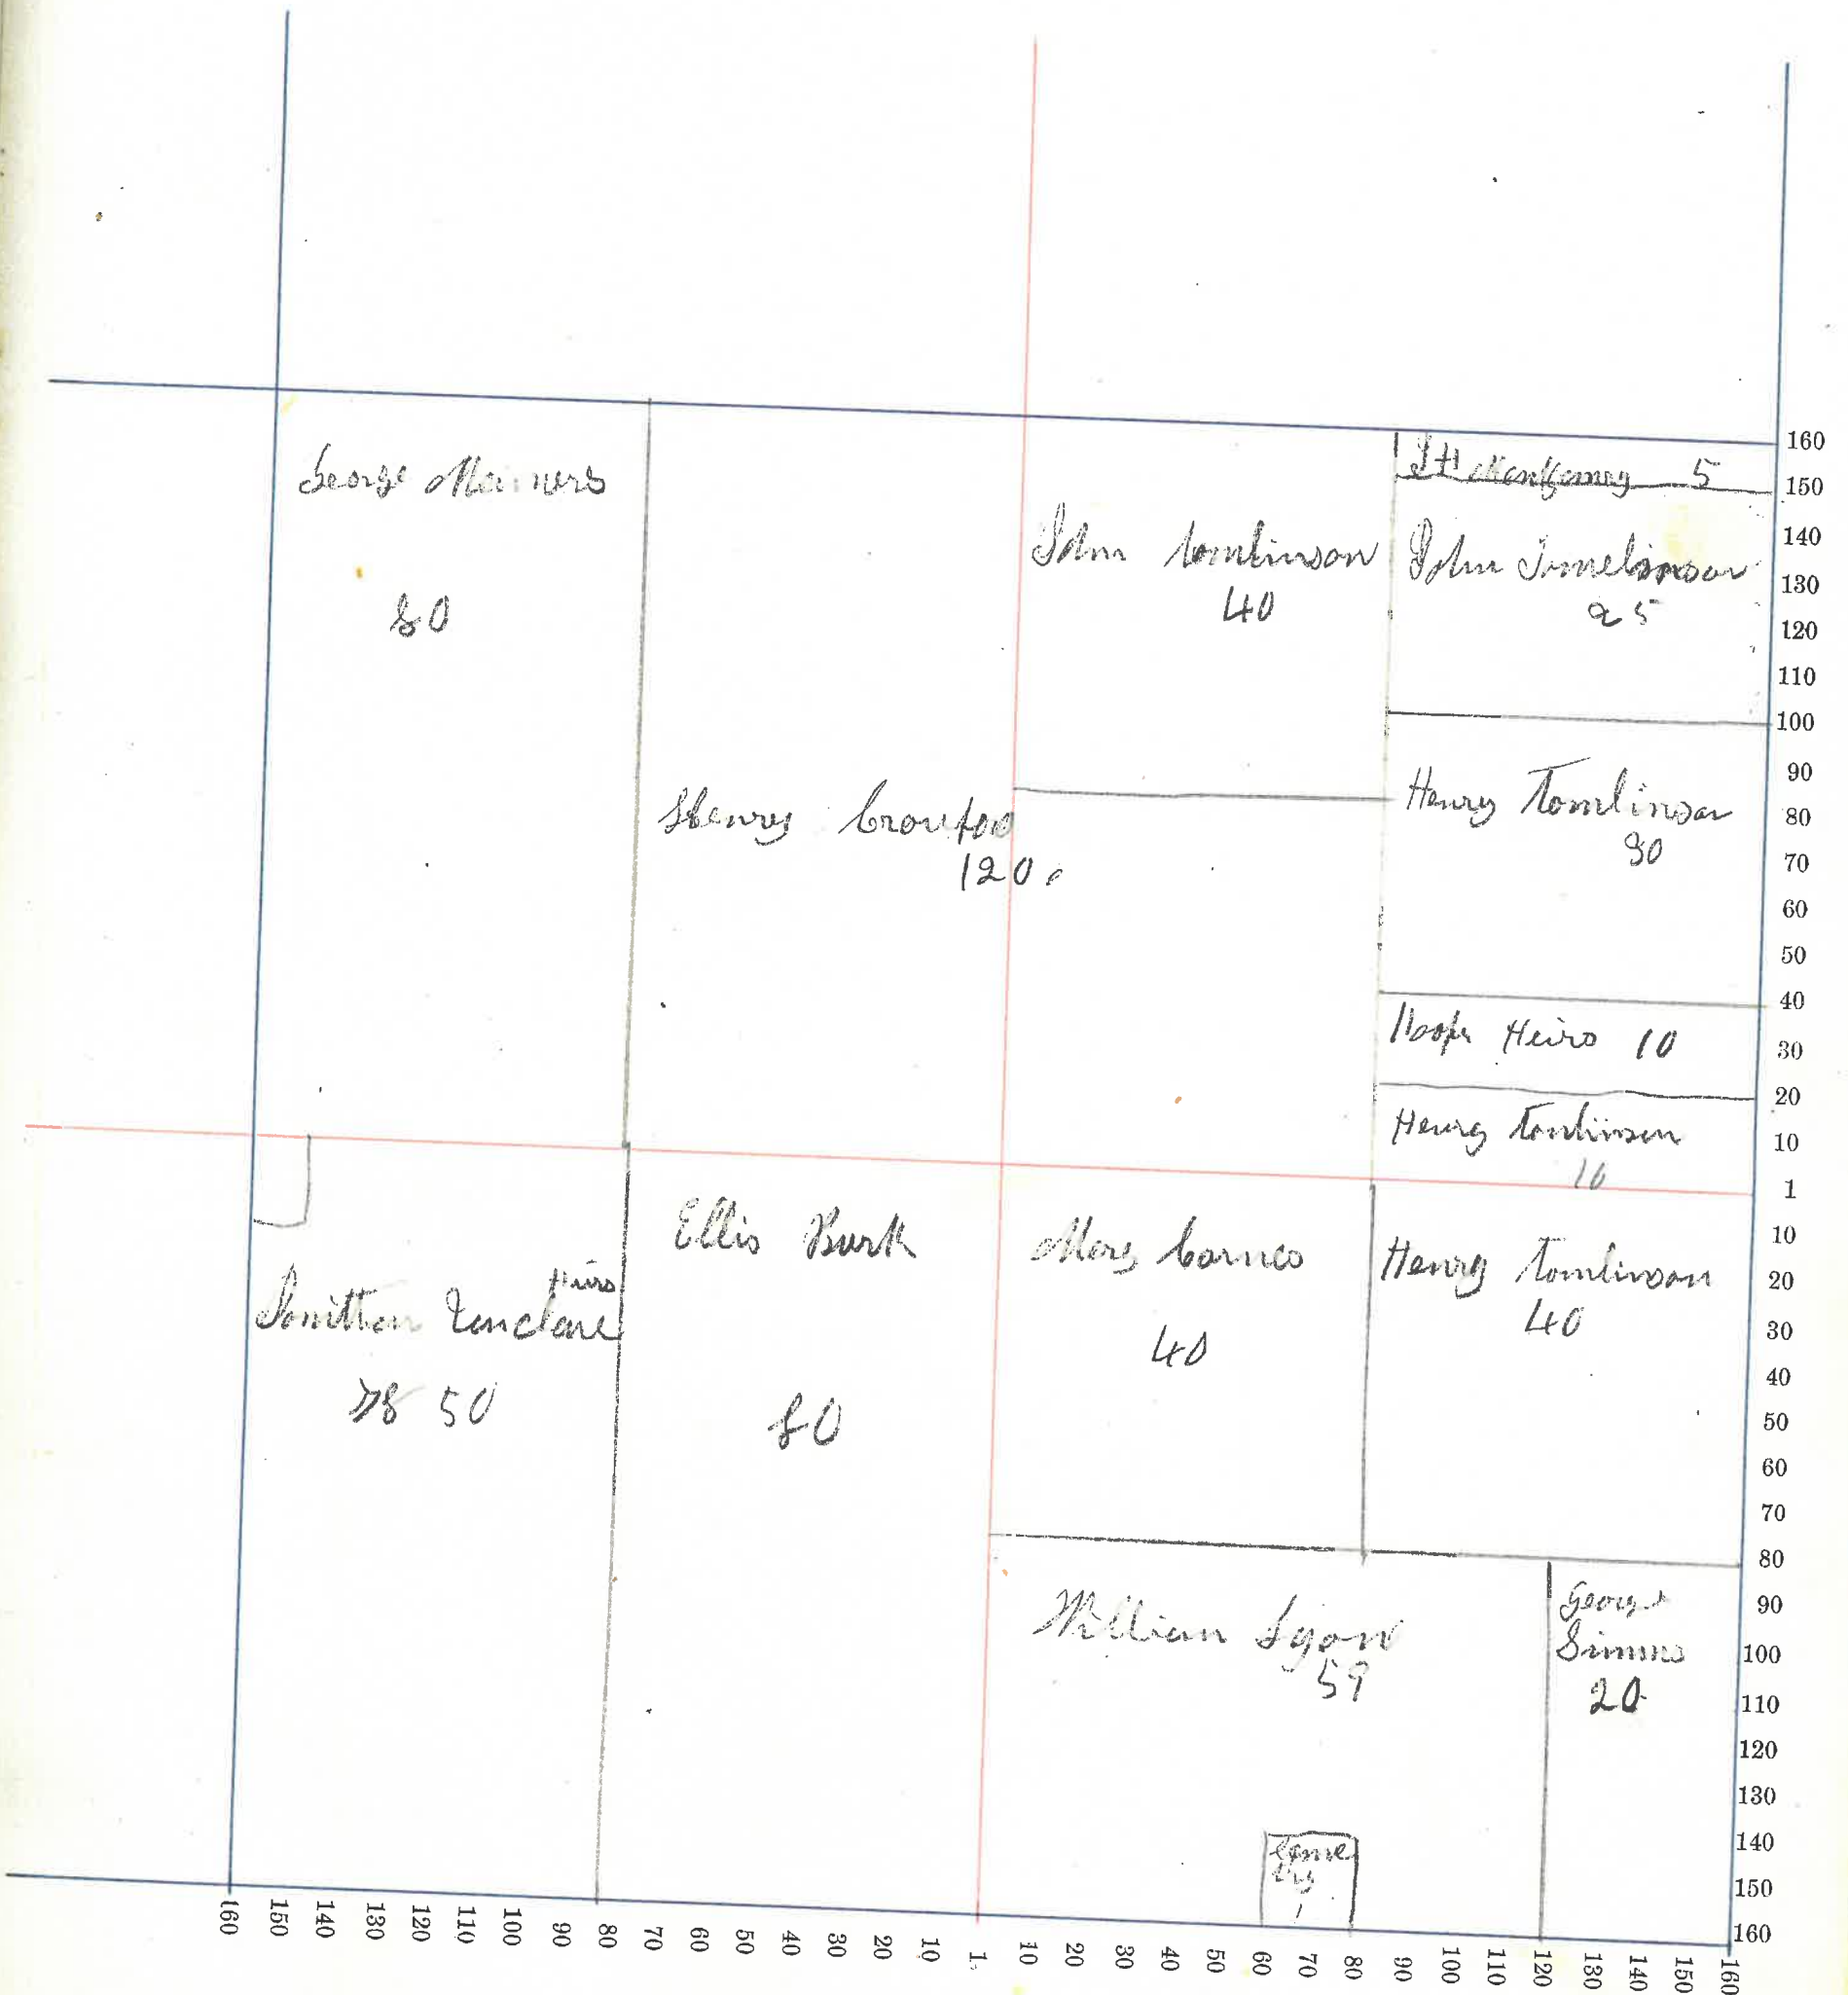 George
80
John Tomlinson
40
5
John Tomelinson
25
Henry
120
Henry Tomlinson
30
Heirs 10
Henry Tomlinson
10
Heirs
50
Ellis Burk
80
Mary Carnes
40
Henry Tomlinson
40
William Lyon
59
George
Simms
20
Ceme
try
1
160
150
140
130
120
110
100
90
80
70
60
50
40
30
20
10
1
10
20
30
40
50
60
70
80
90
100
110
120
130
140
150
160
160 150 140 130 120 110 100 90 80 70 60 50 40 30 20 10 1 10 20 30 40 50 60 70 80 90 100 110 120 130 140 150 160